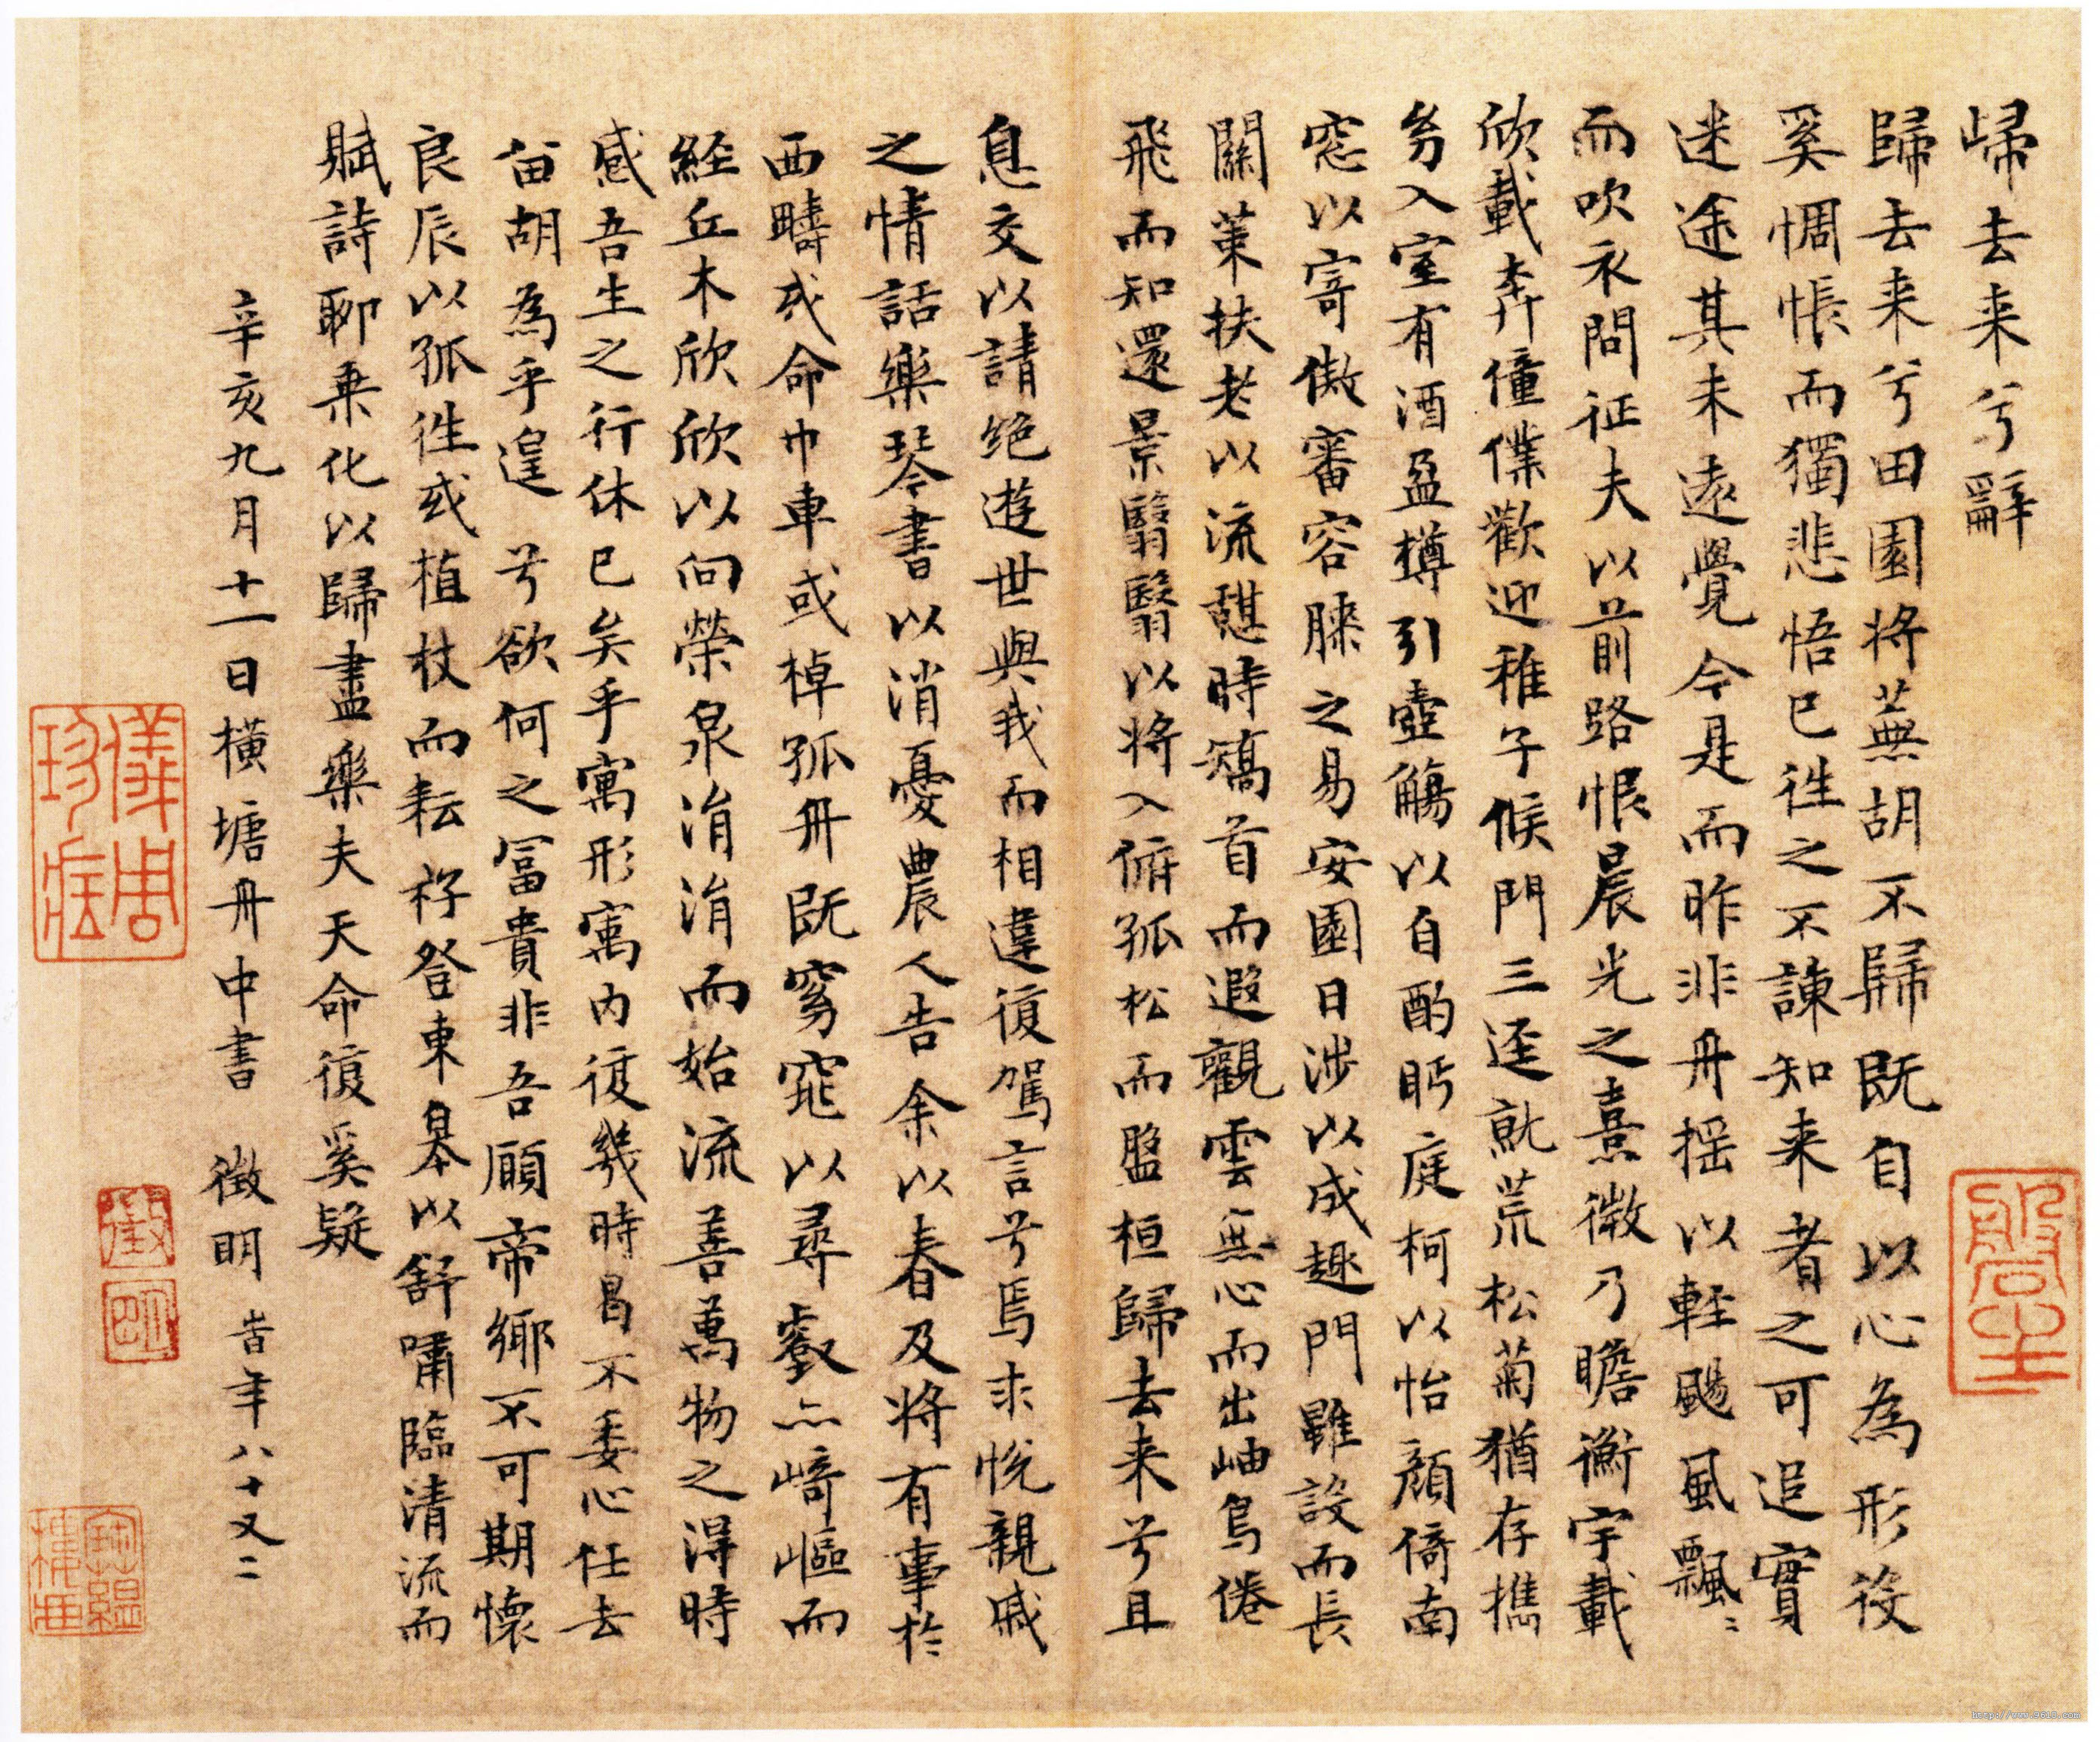 歸去来兮辭
歸去来兮田園将蕪胡不歸既自以心為形役
奚惆悵而獨悲悟已往之不諫知来者之可追實
迷途其未遠覺今是而昨非舟摇以輕颺風飄〻
而吹衣問征夫以前路恨晨光之熹微乃瞻衡宇載
欣載奔僮僕歡迎稚子候門三逕就荒松菊猶存携
幼入室有酒盈樽引壺觴以自酌眄庭柯以怡顔倚南
窓以寄傲審容膝之易安園日涉以成趣門雖設而長
關策扶老以流憩時矯首而遐觀雲無心而出岫鳥倦
飛而知還景翳翳以将入俯孤松而盤桓歸去来兮且
息交以請絶遊世與我而相違復駕言兮焉求悦親戚
之情話樂琴書以消憂農人告余以春及将有事於
西疇或命巾車或棹孤舟既窈窕以尋壑亦崎嶇而
経丘木欣欣以向榮泉涓涓而始流善萬物之得時
感吾生之行休已矣乎寓形寓内復幾時曷不委心任去
留胡為乎遑兮欲何之冨貴非吾願帝鄉不可期懐
良辰以孤往或植杖而耘耔登東皋以舒嘯臨清流而
賦詩聊乗化以歸盡樂夫天命復奚疑
辛亥九月十一日横塘舟中書 徵明 旹年八十又二
儀周珍藏
徵
明
http://www.9610.com